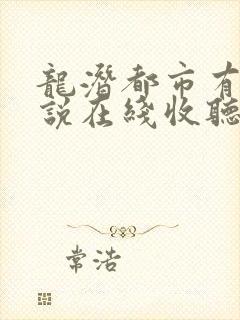 龍潛都市有
說在綫收聽
常浩